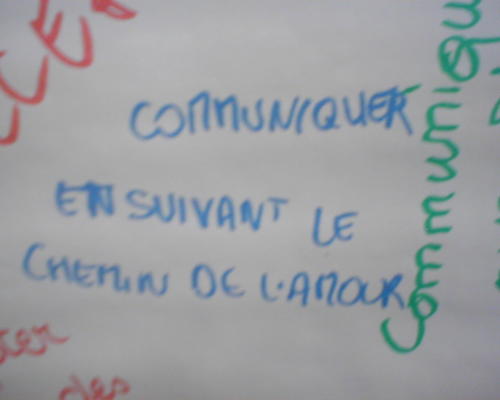 COMMUNIQUER
EN SUIVANT LE
CHEMIN DE L'AMOUR
Communiqu
des